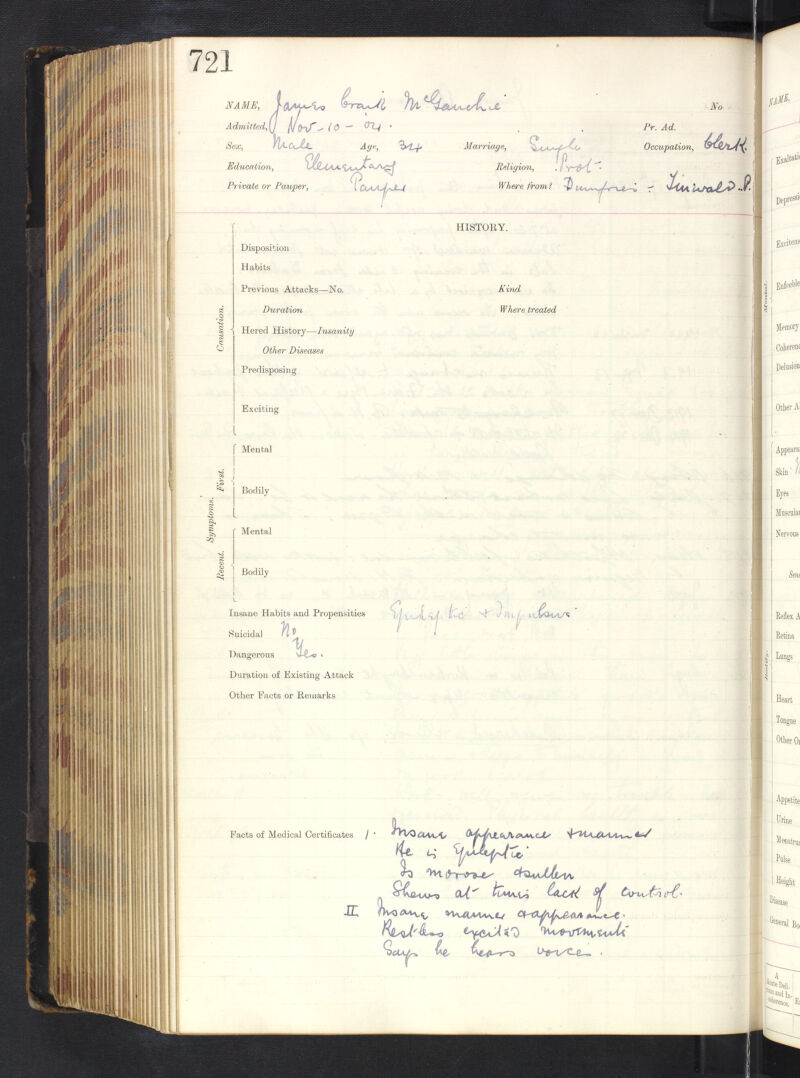 721
NAME, James Craik McGauchie No
Admitted, Nov-10-'04. Pr. Ad.
Sex, Male Age, 34 Marriage, Single Occupation, Clerk.
Education, Elementary Religion, Prot.
Private or Pauper, Pauper Where from? Dumfries - Tinwald. P.
HISTORY.
Causation.
Disposition
Habits
Previous Attacks—No. Kind
Duration Where treated
Hered History—Insanity
Other Diseases
Predisposing
Exciting
Symptoms.
First.
Mental
Bodily
Recent.
Mental
Bodily
Insane Habits and Propensities Epileptic & Impulsive
Suicidal No
Dangerous Yes.
Duration of Existing Attack
Other Facts or Remarks
Facts of Medical Certificates 1. Insane appearance & manner
He is Epileptic
Is morose & sullen
Shews at times lack of control.
II Insane manner & appearance.
Restless excited movements
Says he hears voices.
NAME,
Mental.
Memory
Appetite
Skin
Eyes
Reflex A
Retina
Lungs
Bodily.
Heart
Tongue
Urine
Pulse
Height
Disease
A